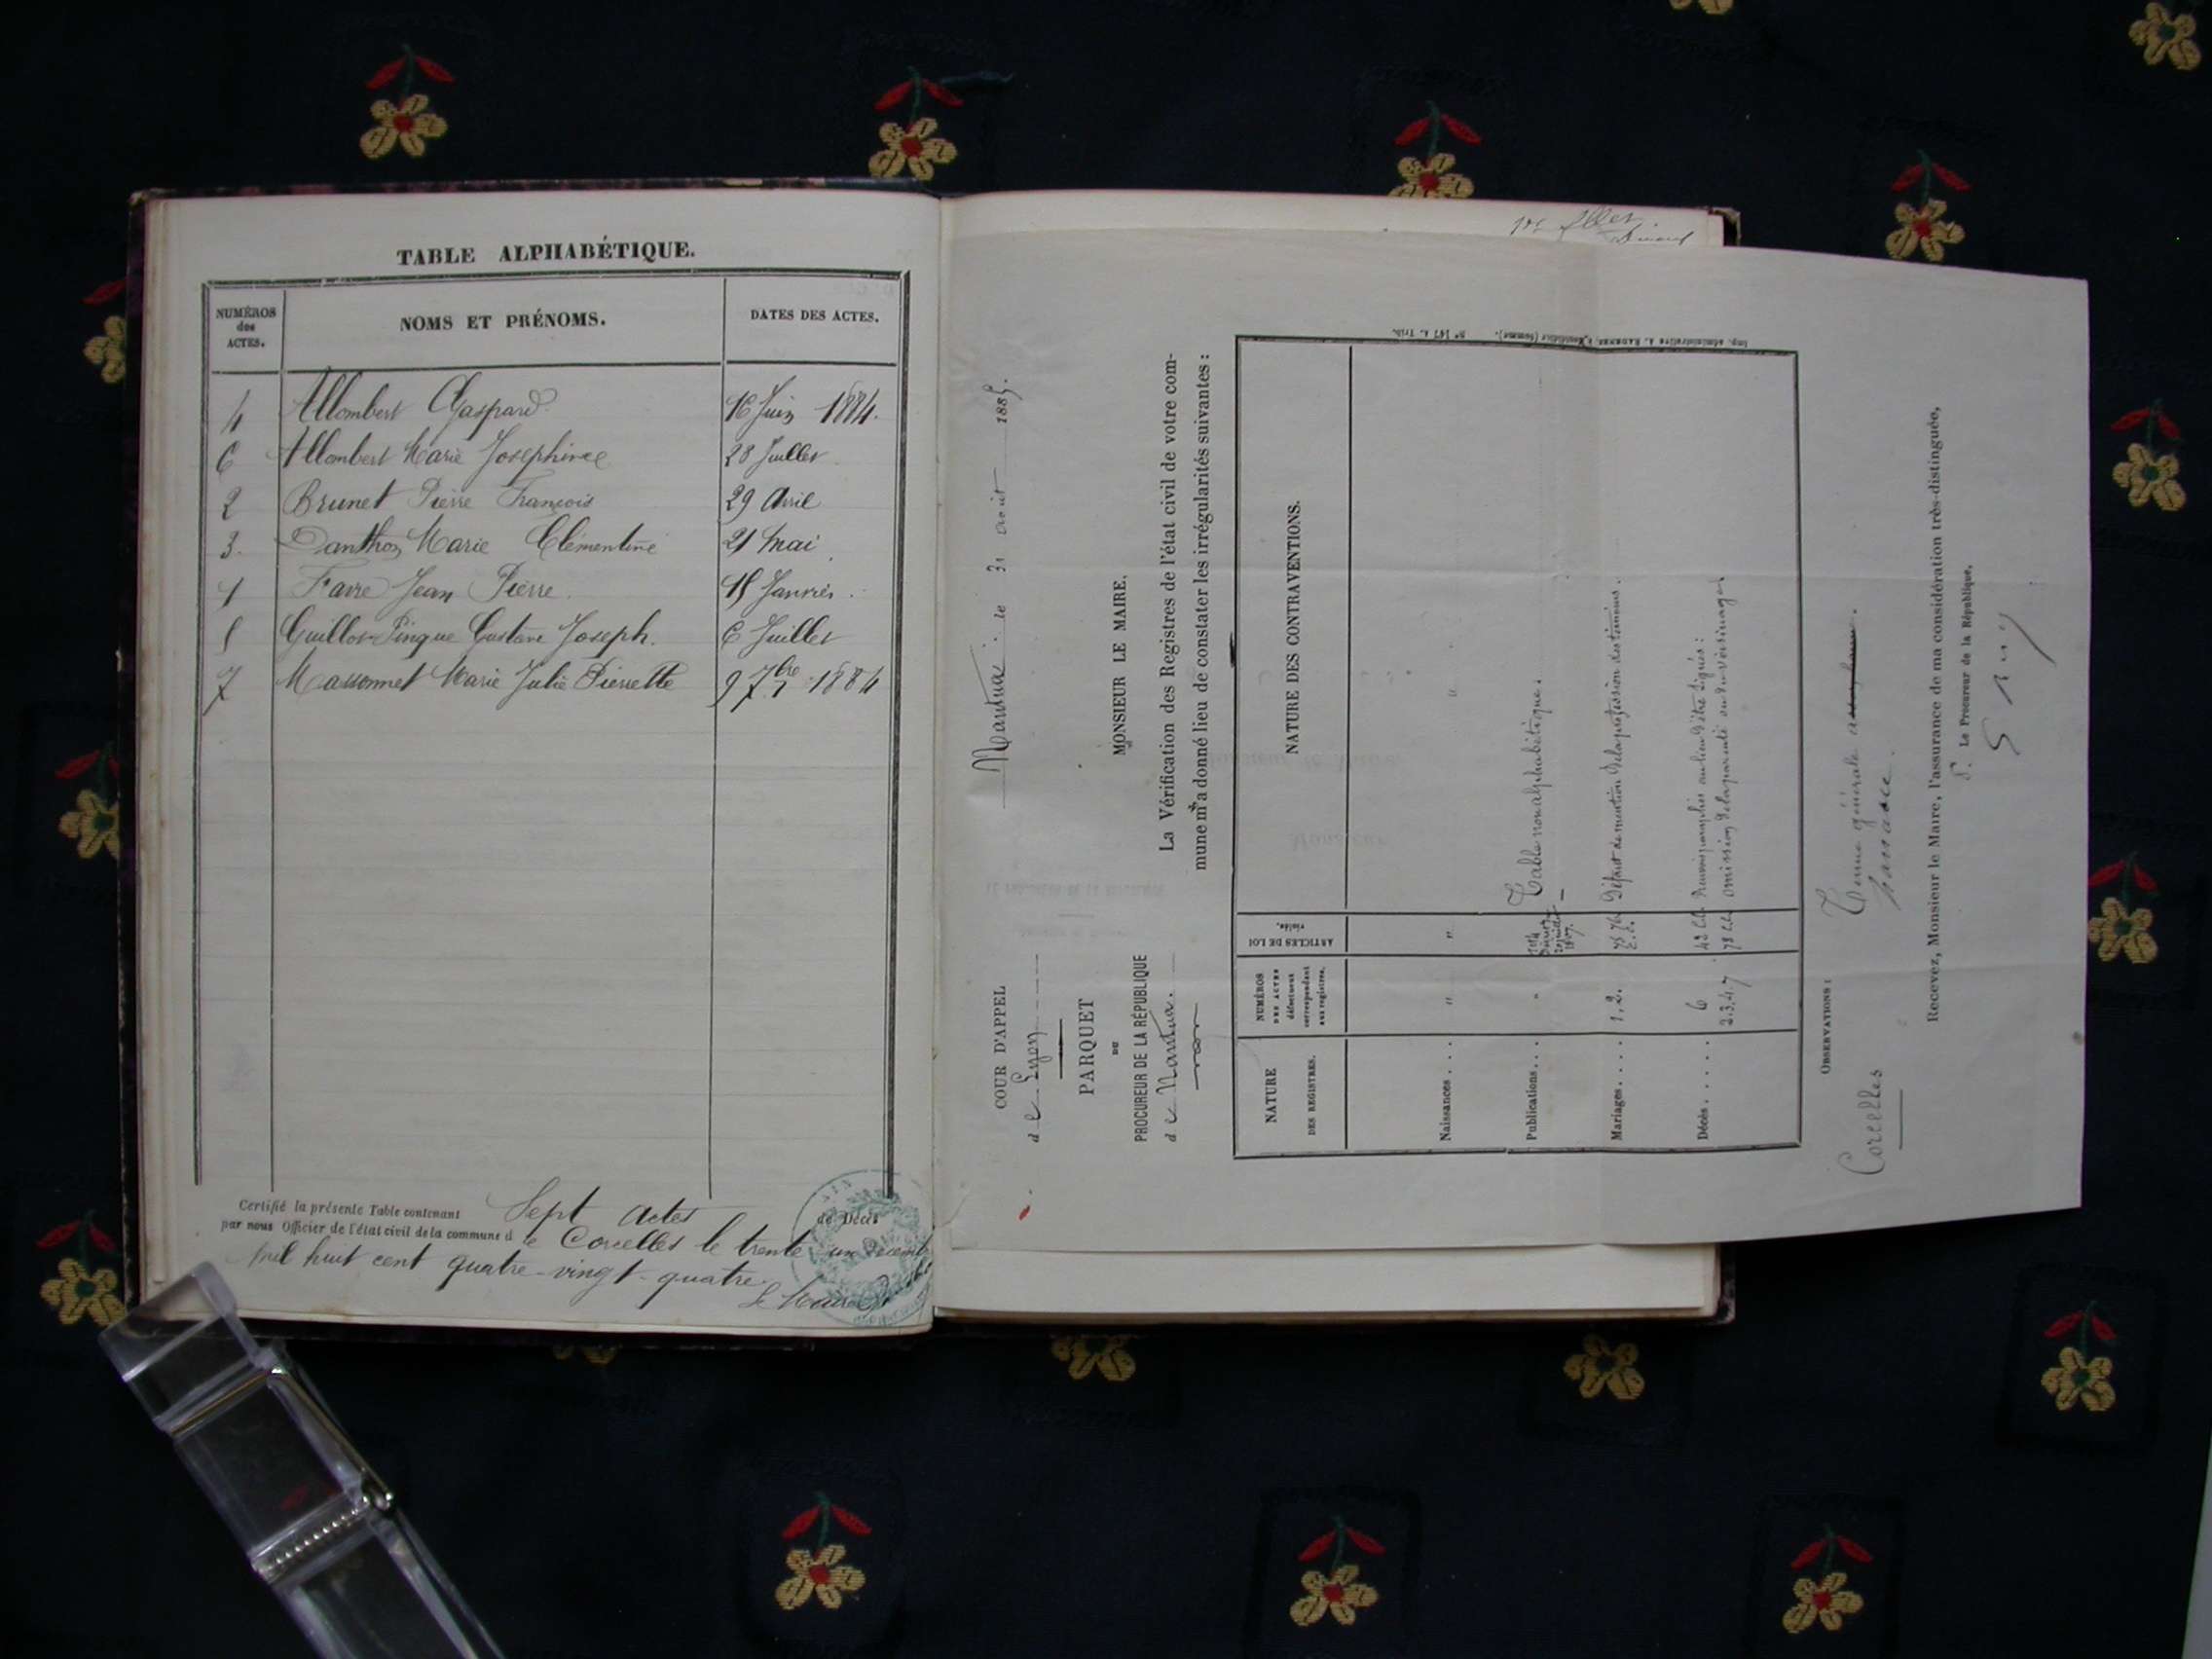 TABLE ALPHABÉTIQUE.
NUMÉROS des ACTES. NOMS ET PRÉNOMS. DATES DES ACTES.
4 Allombert Gaspard 16 Juin 1884.
6 Allombert Marie Josephine 28 Juillet
2 Brunet Pierre François 29 Avril
3. Danthon Marie Clémentine 21 Mai
1 Favre Jean Pierre. 15 Janvier.
5 Guillot-Pingue Gustave Joseph. 6 Juillet
7 Massonnet Marie Julie Pierrette 9 7bre 1884
Certifié la présente Table contenant Sept actes de Décès
par nous Officier de l'état civil de la commune de Corcelles le trente un décembre
mil huit cent quatre-vingt-quatre.
Le Maire
COUR D'APPEL
de Lyon
PARQUET
DU
PROCUREUR DE LA RÉPUBLIQUE
de Nantua.
Nantua le 31 août 1885.
MONSIEUR LE MAIRE,
La Vérification des Registres de l'état civil de votre com-
mune m'a donné lieu de constater les irrégularités suivantes :
Imp. administrative A. RADENEZ, à Montdidier (Somme). N° 147 c. Trib.
NATURE DES REGISTRES. NUMÉROS DES ACTES défectueux correspondant aux registres. ARTICLES DE LOI violés. NATURE DES CONTRAVENTIONS.
Naissances . . . . " " "
Publications . . . . Table non alphabétique.
Mariages . . . . 1. 2. 75 76 C.C. Défaut de mention de la profession des témoins.
Décès . . . . . 6 42 Renvois paraphés au lieu d'être signés :
2. 3. 4. 7 78 omission de la parenté ou du voisinage
OBSERVATIONS :
Corcelles
Tenue générale
passable.
Recevez, Monsieur le Maire, l'assurance de ma considération très-distinguée,
P. Le Procureur de la République,